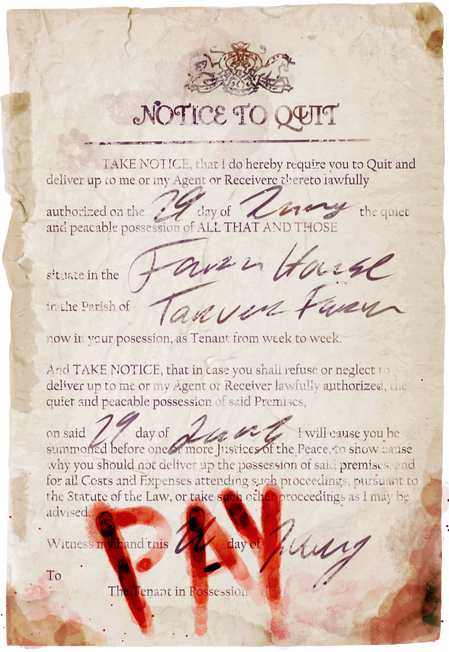 NOTICE TO QUIT
TAKE NOTICE, that I do hereby require you to Quit and
deliver up to me or my Agent or Receivere thereto lawfully
authorized on the 29 day of the quiet
and peacable possession of ALL THAT AND THOSE
situate in the House
in the Parish of
now in your posession, as Tenant from week to week.
And TAKE NOTICE, that in case you shall refuse or neglect to
deliver up to me or my Agent or Receiver lawfully authorized, the
quiet and peacable possession of said Premises,
on said 29 day of I will cause you be
summoned before one of more Justices of the Peace, to show cause
why you should not deliver up the possession of said premises, and
for all Costs and Expenses attending such proceedings, pursuant to
the Statute of the Law, or take such other proceedings as I may be
advised.
Witness my hand this day of
To
The Tenant in Possession
PAY